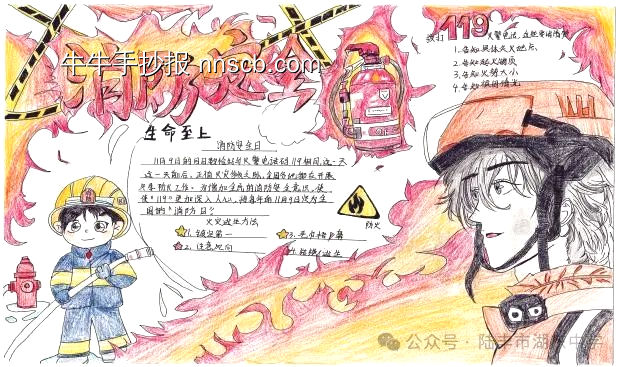 消防安全
牛牛手抄报 nnscb.com
拨打119火警电话,
1.告知具体火灾地点
2.告知起火物质
3.告知火势大小
4.告知
生命至上
消防安全日
11月9日的月日数恰好与火警电话号119相同,这一天
这一天前后,正值火灾多发之际,全国各地都在开展
冬季防火工作。为增加全民的消防安全意识,使
使"119"更加深入人心,将每年的11月9日定为全
国的"消防日"
火灾逃生方法
1.镇定第一
2.注意风向
3.
4.
防火
公众号·陆丰市湖东中学